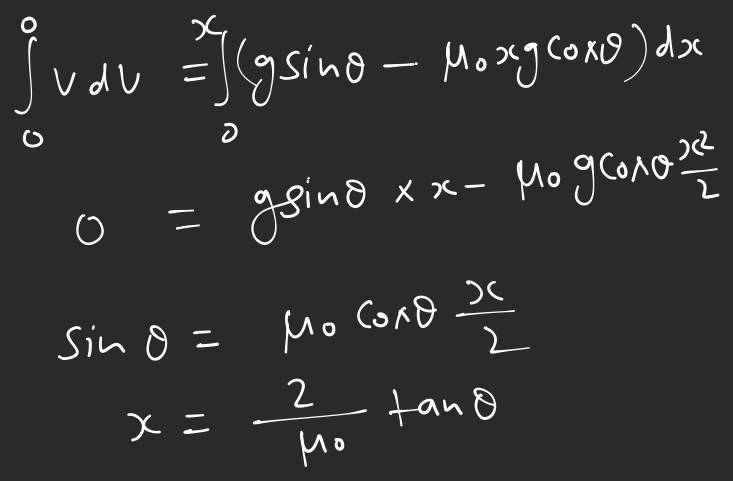 ∫₀⁰ v dv = ∫₀ˣ (g sinθ − μ₀xg cosθ) dx
0 = g sinθ × x − μ₀ g cosθ x²/2
sin θ = μ₀ cosθ x/2
x = 2/μ₀ tan θ